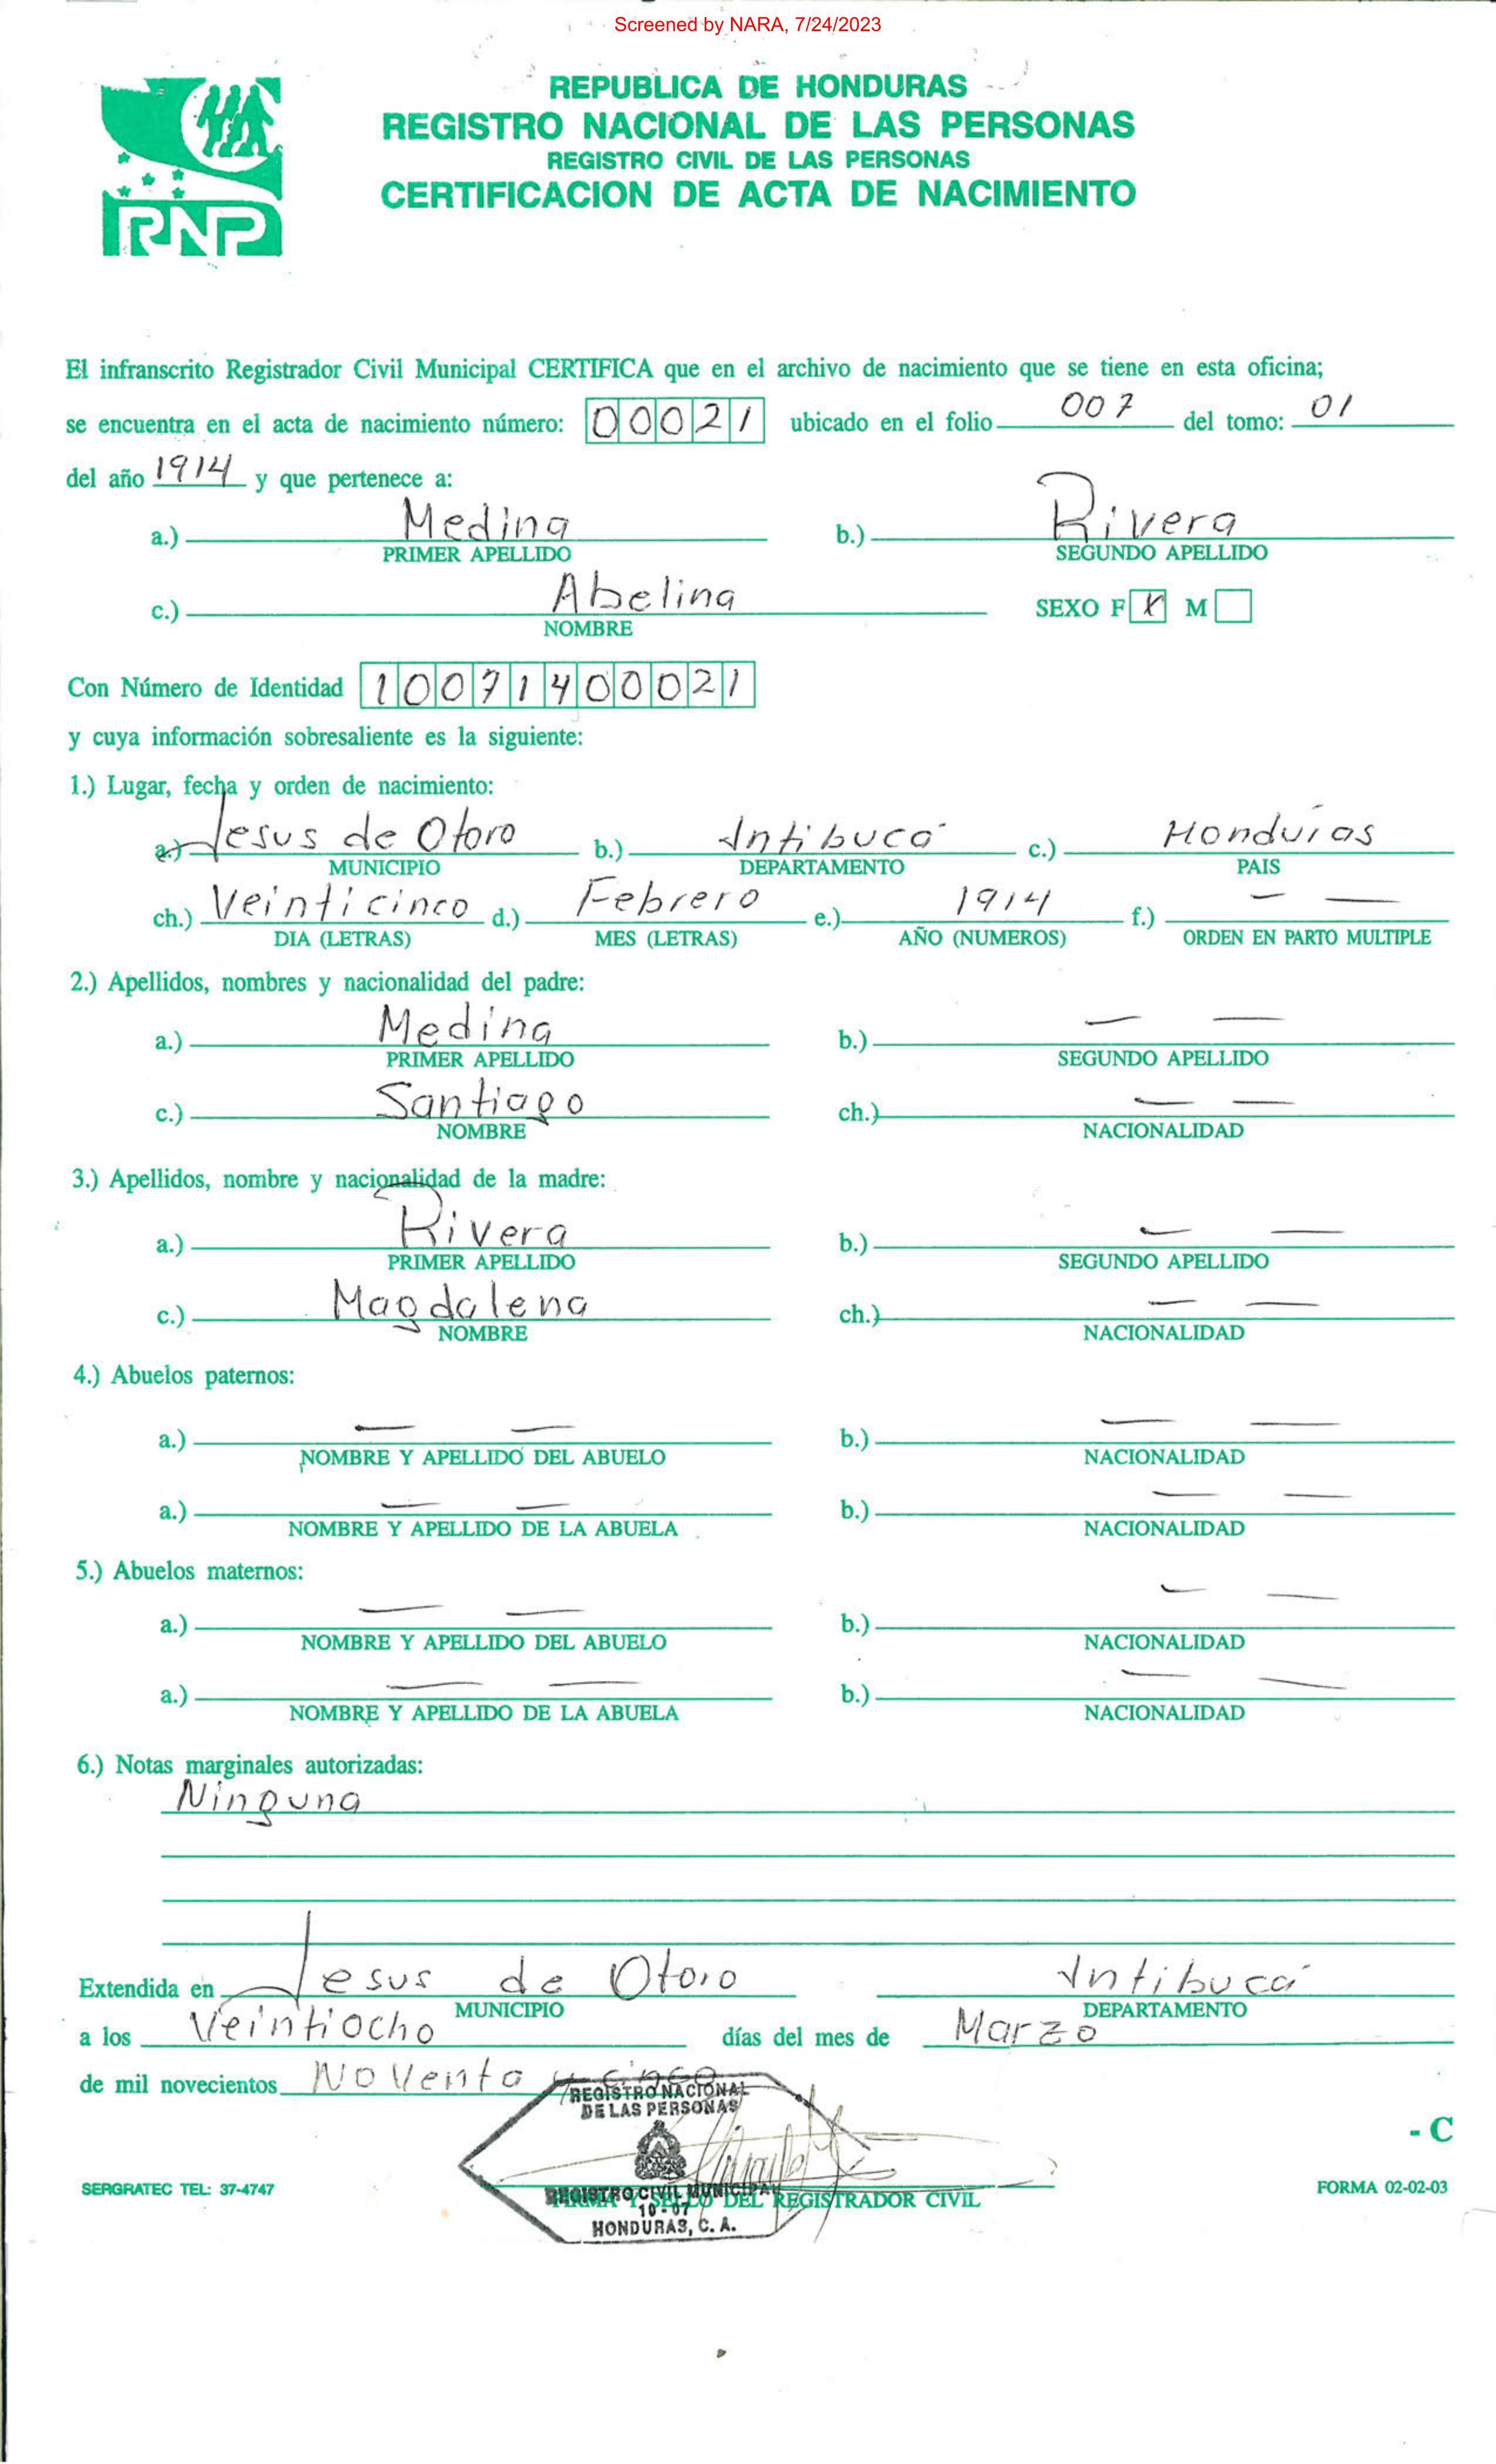 Screened by NARA, 7/24/2023
REPUBLICA DE HONDURAS
REGISTRO NACIONAL DE LAS PERSONAS
REGISTRO CIVIL DE LAS PERSONAS
CERTIFICACION DE ACTA DE NACIMIENTO
RNP
El infranscrito Registrador Civil Municipal CERTIFICA que en el archivo de nacimiento que se tiene en esta oficina;
se encuentra en el acta de nacimiento número: 00021 ubicado en el folio 007 del tomo: 01
del año 1914 y que pertenece a:
a.) Medina b.) Rivera
PRIMER APELLIDO SEGUNDO APELLIDO
c.) Abelina SEXO F X M
NOMBRE
Con Número de Identidad 10071400021
y cuya información sobresaliente es la siguiente:
1.) Lugar, fecha y orden de nacimiento:
a.) Jesus de Otoro b.) Intibucá c.) Honduras
MUNICIPIO DEPARTAMENTO PAIS
ch.) Veinticinco d.) Febrero e.) 1914 f.) — —
DIA (LETRAS) MES (LETRAS) AÑO (NUMEROS) ORDEN EN PARTO MULTIPLE
2.) Apellidos, nombres y nacionalidad del padre:
a.) Medina b.) — —
PRIMER APELLIDO SEGUNDO APELLIDO
c.) Santiago ch.) — —
NOMBRE NACIONALIDAD
3.) Apellidos, nombre y nacionalidad de la madre:
a.) Rivera b.) — —
PRIMER APELLIDO SEGUNDO APELLIDO
c.) Magdalena ch.) — —
NOMBRE NACIONALIDAD
4.) Abuelos paternos:
a.) — — b.) — —
NOMBRE Y APELLIDO DEL ABUELO NACIONALIDAD
a.) — — b.) — —
NOMBRE Y APELLIDO DE LA ABUELA NACIONALIDAD
5.) Abuelos maternos:
a.) — — b.) — —
NOMBRE Y APELLIDO DEL ABUELO NACIONALIDAD
a.) — — b.) — —
NOMBRE Y APELLIDO DE LA ABUELA NACIONALIDAD
6.) Notas marginales autorizadas:
Ninguna
Extendida en Jesus de Otoro Intibucá
MUNICIPIO DEPARTAMENTO
a los Veintiocho días del mes de Marzo
de mil novecientos Noventa y cinco
REGISTRO NACIONAL
DE LAS PERSONAS
- C
SERGRATEC TEL: 37-4747 FORMA 02-02-03
REGISTRO CIVIL MUNICIPAL
FIRMA Y SELLO DEL REGISTRADOR CIVIL
10-07
HONDURAS, C. A.